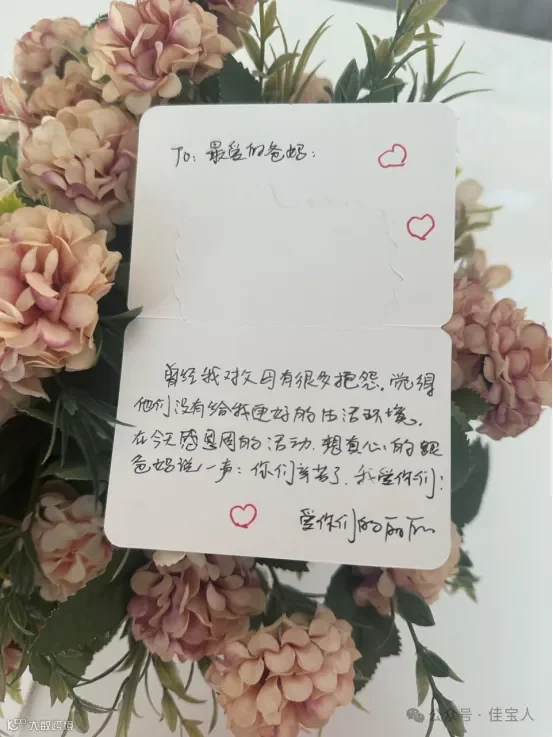 To：最爱的爸妈：
曾经我对父母有很多抱怨，觉得
他们没有给我更好的生活环境。
在今天感恩周的活动，想真心的跟
爸妈说一声：你们辛苦了，我爱你们！
爱你们的丽丽
大数跨境
公众号·佳宝人